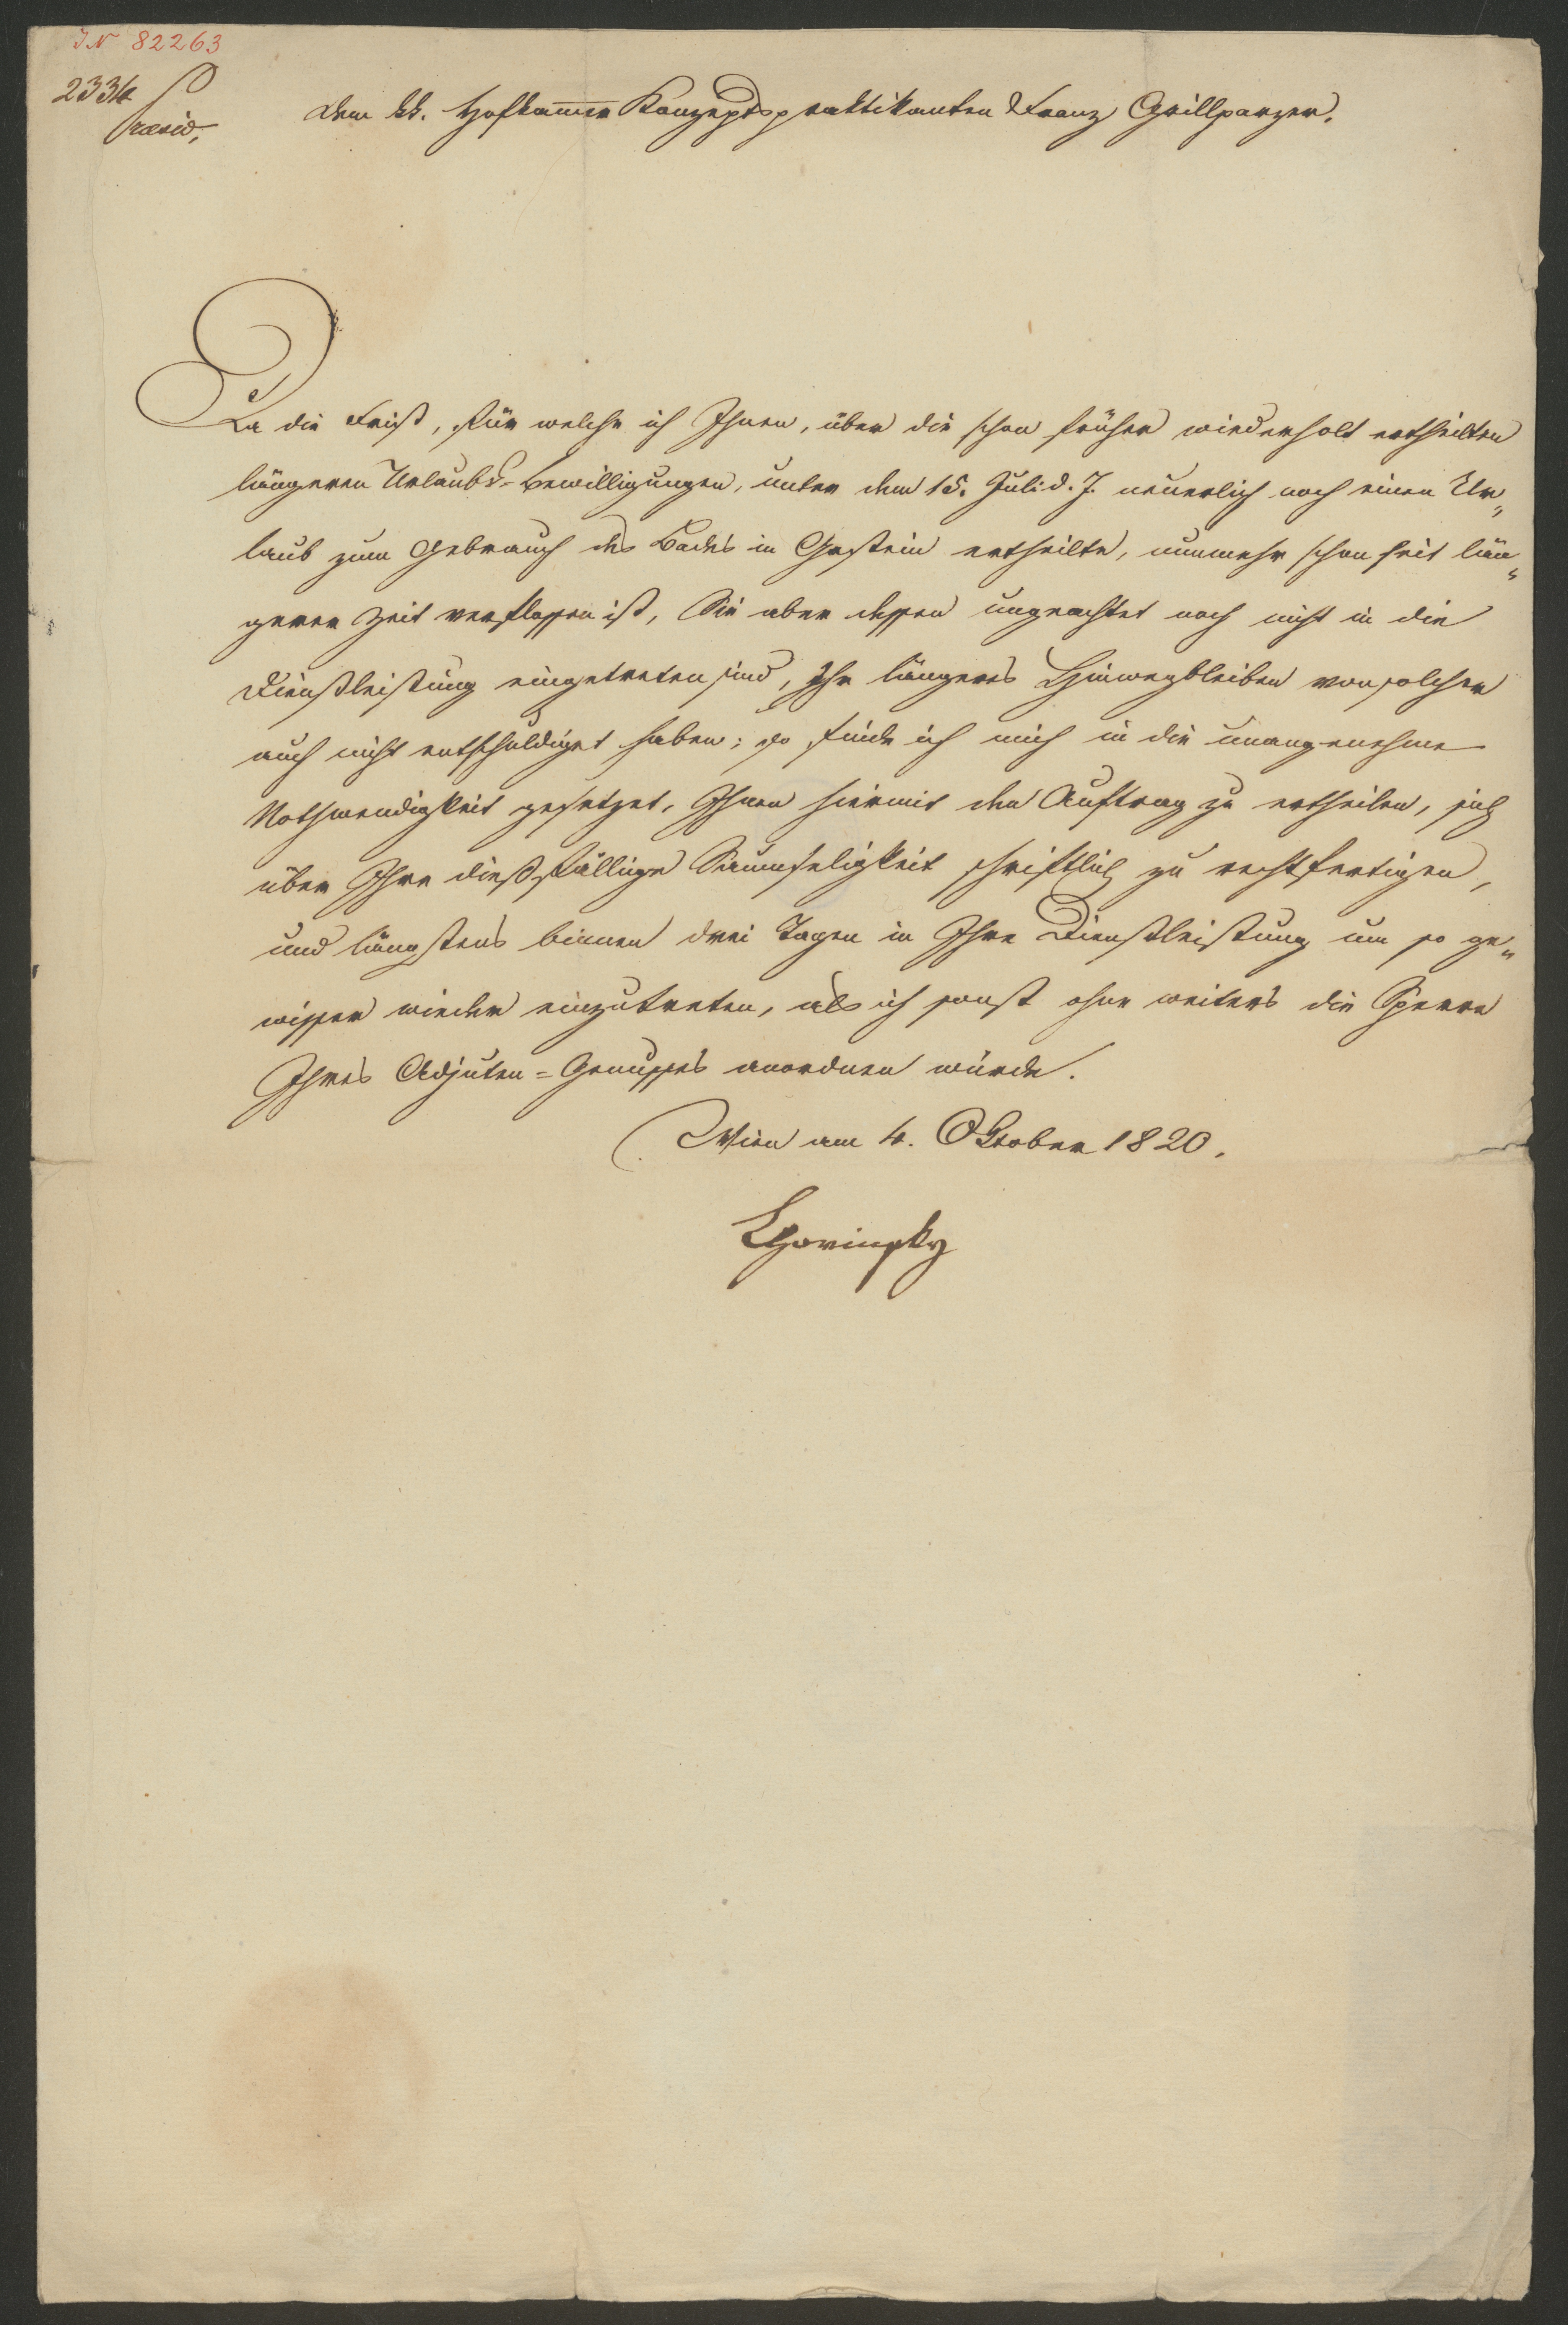 IN 82263
2334
Præsid.
Dem kk. Hofkammer Konzeptspraktikanten Franz Grillparzer.
Da die Frist, für welche ich Ihnen, über die schon früher wiederholt ertheilten
längeren Urlaubs-Bewilligungen, unter dem 15. Juli d. J. neuerlich noch einen Ur„
laub zum Gebrauch des Bades in Gastein ertheilte, nunmehr schon seit län„
gerer Zeit verflossen ist, Sie aber dessen ungeachtet noch nicht in die
Dienstleistung eingetreten sind, Ihr längeres Hinwegbleiben von solcher
auch nicht entschuldiget haben; so finde ich mich in die unangenehme
Nothwendigkeit gesetzet, Ihnen hiermit den Auftrag zu ertheilen, sich
über Ihre dießfällige Saumseligkeit schriftlich zu rechtfertigen,
und längstens binnen drei Tagen in Ihre Dienstleistung um so ge„
wisser wieder einzutreten, als ich sonst ohne weiters die Sperre
Ihres Adjuten=Genusses anordnen würde.
Wien am 4. Oktober 1820.
Chorinsky